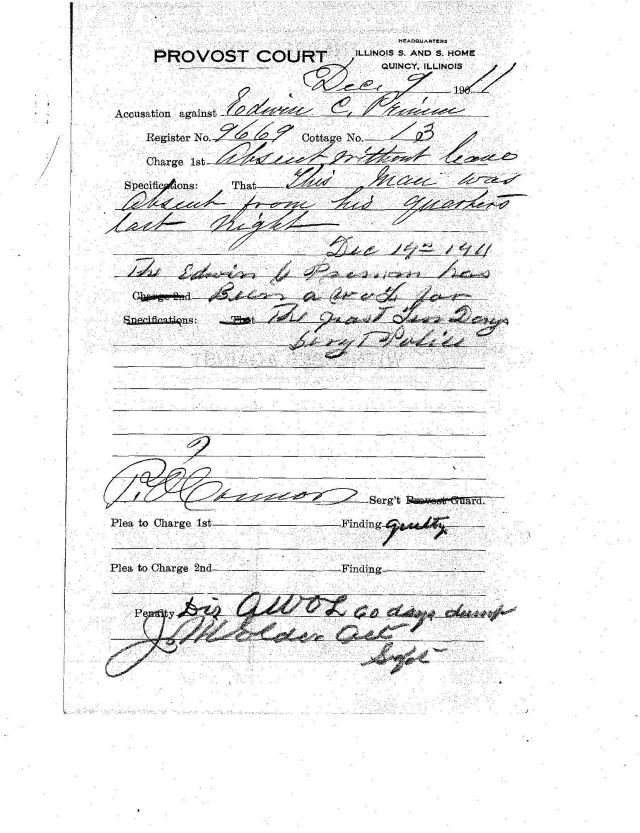 HEADQUARTERS
PROVOST COURT ILLINOIS S. AND S. HOME
QUINCY, ILLINOIS
Dec 9 1911
Accusation against Edwin C. Primm
Register No. 9669 Cottage No. 13
Charge 1st Absent Without leave
Specifications: That This Man was
Absent from his quarters
last Night
Dec 19th 1911
The Edwin C Primm has
Charge 2nd Been a w o L for
Specifications: That The past Ten Days
Sergt Police
P. O'Connor Serg't Provost Guard.
Plea to Charge 1st Finding guilty
Plea to Charge 2nd Finding
Penalty Dis AWOL 60 days dump
J. M. Act
Supt